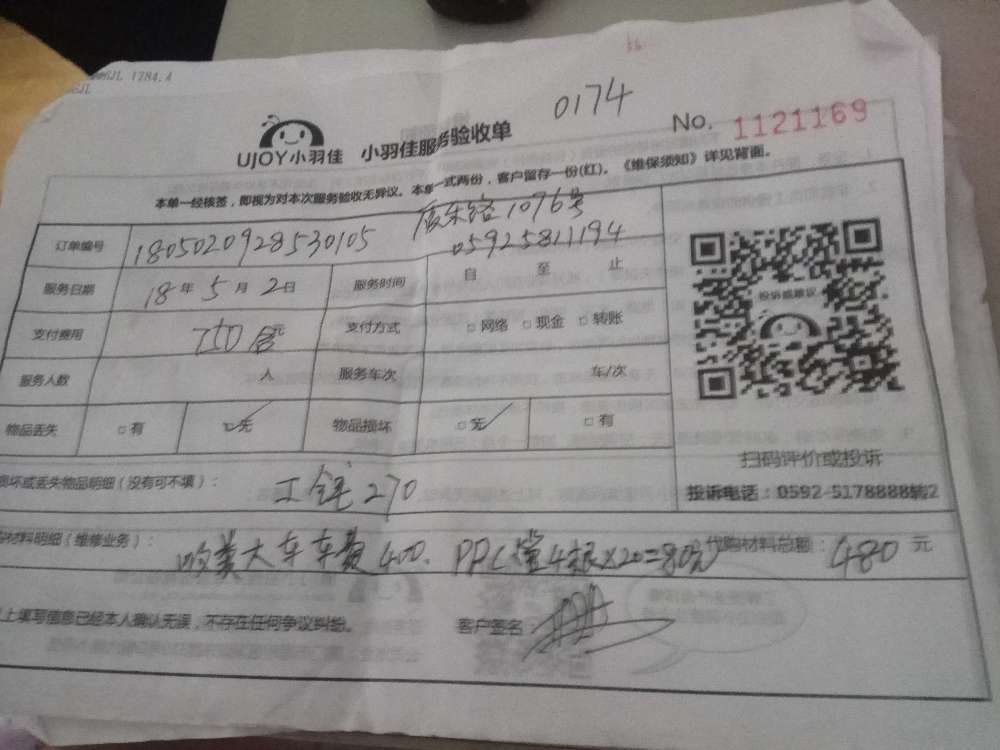 1284.4
0174
UJOY小羽佳 小羽佳服务验收单
No. 1121169
本单一经核签,即视为对本次服务验收无异议。本单一式两份,客户留存一份(红)。《维保须知》详见背面。
订单编号 1805020928530105 1076号
05925811194
服务日期 18年5月2日 服务时间 自 至 止
支付费用 750 元 支付方式 □网络 □现金 □转账
投诉或建议
服务人数 人 服务车次 车/次
物品丢失 □有 □无 物品损坏 □无 □有
扫码评价或投诉
损坏或丢失物品明细(没有可不填): 工钱270
投诉电话:0592-5178888转2
材料明细(维修业务): 吸粪大车车费400. PPC管4根×20=80元 代购材料总额: 480 元
上填写信息已经本人确认无误,不存在任何争议纠纷。 客户签名: